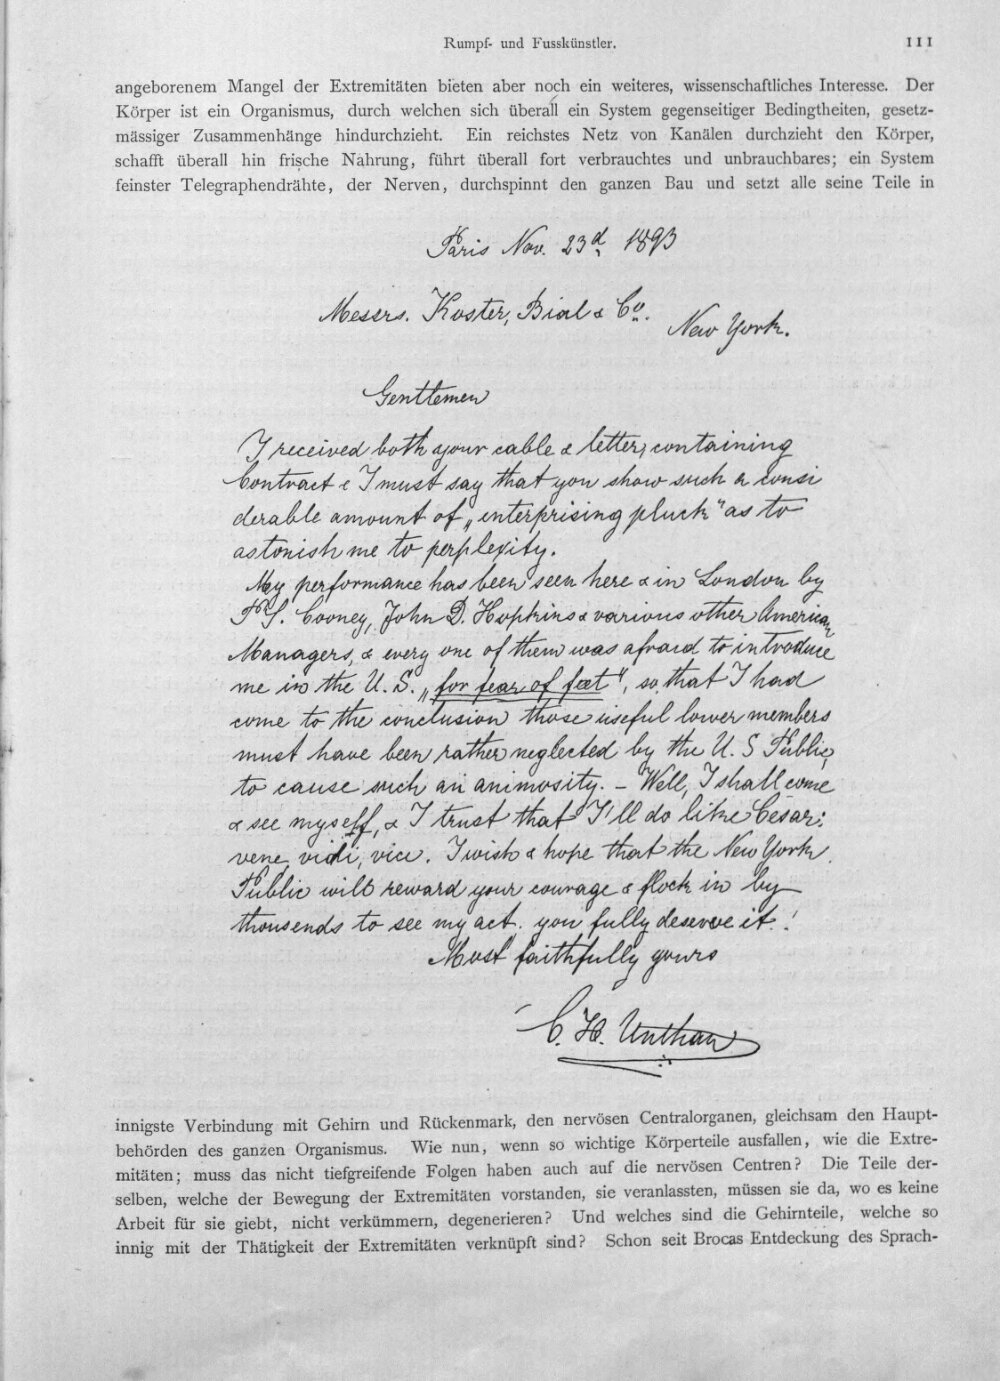 Rumpf- und Fusskünstler. 111
angeborenem Mangel der Extremitäten bieten aber noch ein weiteres, wissenschaftliches Interesse. Der
Körper ist ein Organismus, durch welchen sich überall ein System gegenseitiger Bedingtheiten, gesetz-
mässiger Zusammenhänge hindurchzieht. Ein reichstes Netz von Kanälen durchzieht den Körper,
schafft überall hin frische Nahrung, führt überall fort verbrauchtes und unbrauchbares; ein System
feinster Telegraphendrähte, der Nerven, durchspinnt den ganzen Bau und setzt alle seine Teile in
Paris Nov. 23d 1893
Messrs. Koster, Bial & Co.
New York.
Gentlemen
I received both your cable & letter, containing
Contract & I must say that you show such a consi
derable amount of „enterprising pluck" as to
astonish me to perplexity.
My performance has been seen here & in London by
Cooney, John D. Hopkins & various other American
Managers, & every one of them was afraid to introduce
me in the U. S. „for fear of feet", so, that I had
come to the conclusion those useful lower members
must have been rather neglected by the U. S Public,
to cause such an animosity. – Well, I shall come
& see myself, & I trust that I'll do like César:
vene, vidi, vice. I wish & hope that the New York
Public will reward your courage & flock in by
thousends to see my act. you fully deserve it.!
Most faithfully yours
C. H. Unthan
innigste Verbindung mit Gehirn und Rückenmark, den nervösen Centralorganen, gleichsam den Haupt-
behörden des ganzen Organismus. Wie nun, wenn so wichtige Körperteile ausfallen, wie die Extre-
mitäten; muss das nicht tiefgreifende Folgen haben auch auf die nervösen Centren? Die Teile der-
selben, welche der Bewegung der Extremitäten vorstanden, sie veranlassten, müssen sie da, wo es keine
Arbeit für sie giebt, nicht verkümmern, degenerieren? Und welches sind die Gehirnteile, welche so
innig mit der Thätigkeit der Extremitäten verknüpft sind? Schon seit Brocas Entdeckung des Sprach-